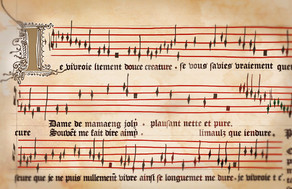 Je vivroie liement douce creature, se vous savies vraiement que
Dame de plaisant nette et pure.
cure Souvent me fait dire que iendure,
seure que je ne puis nullement vivre ainsi se longuement me dure je vivroie